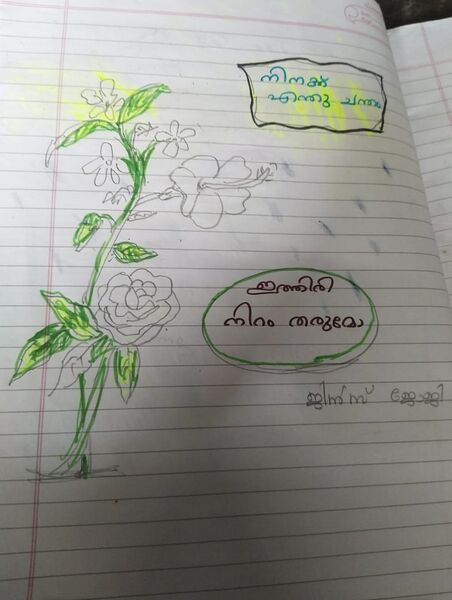 നിനക്ക്
എന്തു ചന്തം
ഇത്തിരി
നിറം തരുമോ
ജിൻസ് ജോജി